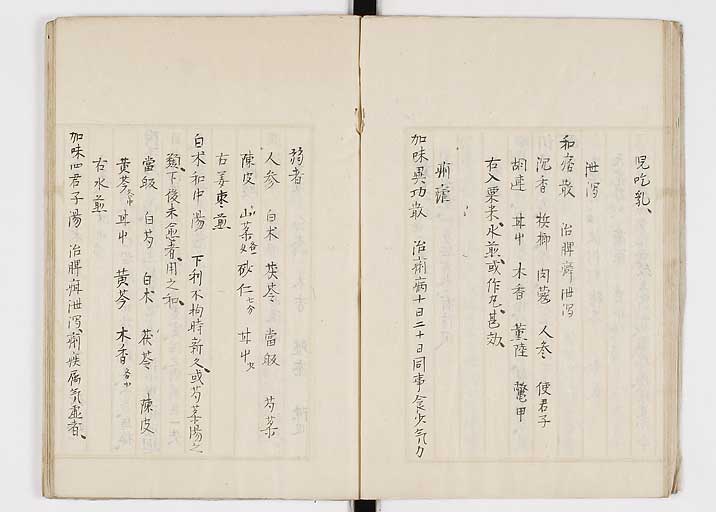 児吃乳、
泄瀉
和痞散　治脾癖泄瀉
沉香　檳榔　肉蔲　人参　使君子
胡連　甘中　木香　薫陸　鼈甲
右入粟米、水煎、或作丸、甚効、
痢
加味異功散　治痢病十日二十日同事食少気力
弱者
人参　白术　茯苓　當皈　芍薬
陳皮　山薬　砂仁七分　甘中
右姜棗煎
白术和中湯　下利不拘時新久、或芍薬湯之
類、下後未愈者、用之和、
當皈　白芍　白术　茯苓　陳皮
黄芩　甘中　黄芩　木香
右水煎
加味四君子湯　治脾癖泄瀉、痢疾属気虚者、